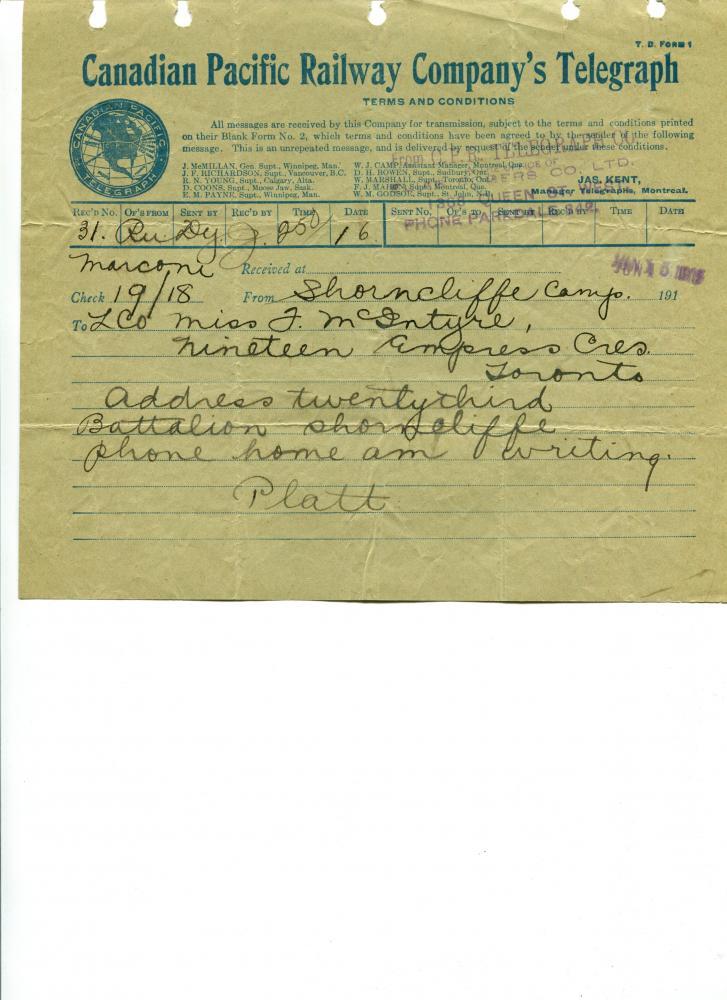 T. D. FORM 1
Canadian Pacific Railway Company's Telegraph
TERMS AND CONDITIONS
CANADIAN PACIFIC
TELEGRAPH
All messages are received by this Company for transmission, subject to the terms and conditions printed
on their Blank Form No. 2, which terms and conditions have been agreed to by the sender of the following
message. This is an unrepeated message, and is delivered by request of the sender under these conditions.
J. McMILLAN, Gen. Supt., Winnipeg, Man.
J. F. RICHARDSON, Supt., Vancouver, B.C.
R. N. YOUNG, Supt., Calgary, Alta.
D. COONS, Supt., Moose Jaw, Sask.
E. M. PAYNE, Supt., Winnipeg, Man.
W. J. CAMP, Assistant Manager, Montreal, Que.
D. H. BOWEN, Supt., Sudbury, Ont.
W. MARSHALL, Supt., Toronto, Ont.
F. J. MAHON, Supt., Montreal, Que.
W. M. GODSOE, Supt., St. John, N.B.
JAS. KENT,
Manager Telegraphs, Montreal.
From C. P. R. TELEGRAPH
OFFICE OF
CO. LTD.
QUEEN ST. WEST
PHONE PARKDALE
REC'D NO. OP'S FROM SENT BY REC'D BY TIME DATE SENT NO. OP'S TO SENT BY REC'D BY TIME DATE
31. Ru Dy. J. 250 16
Marconi Received at
Check 19/18 From Shorncliffe Camp. 191
To LCO Miss F. McIntyre,
nineteen Empress Cres.
Toronto
Address twentythird
Battalion shorncliffe
phone home am writing.
Platt